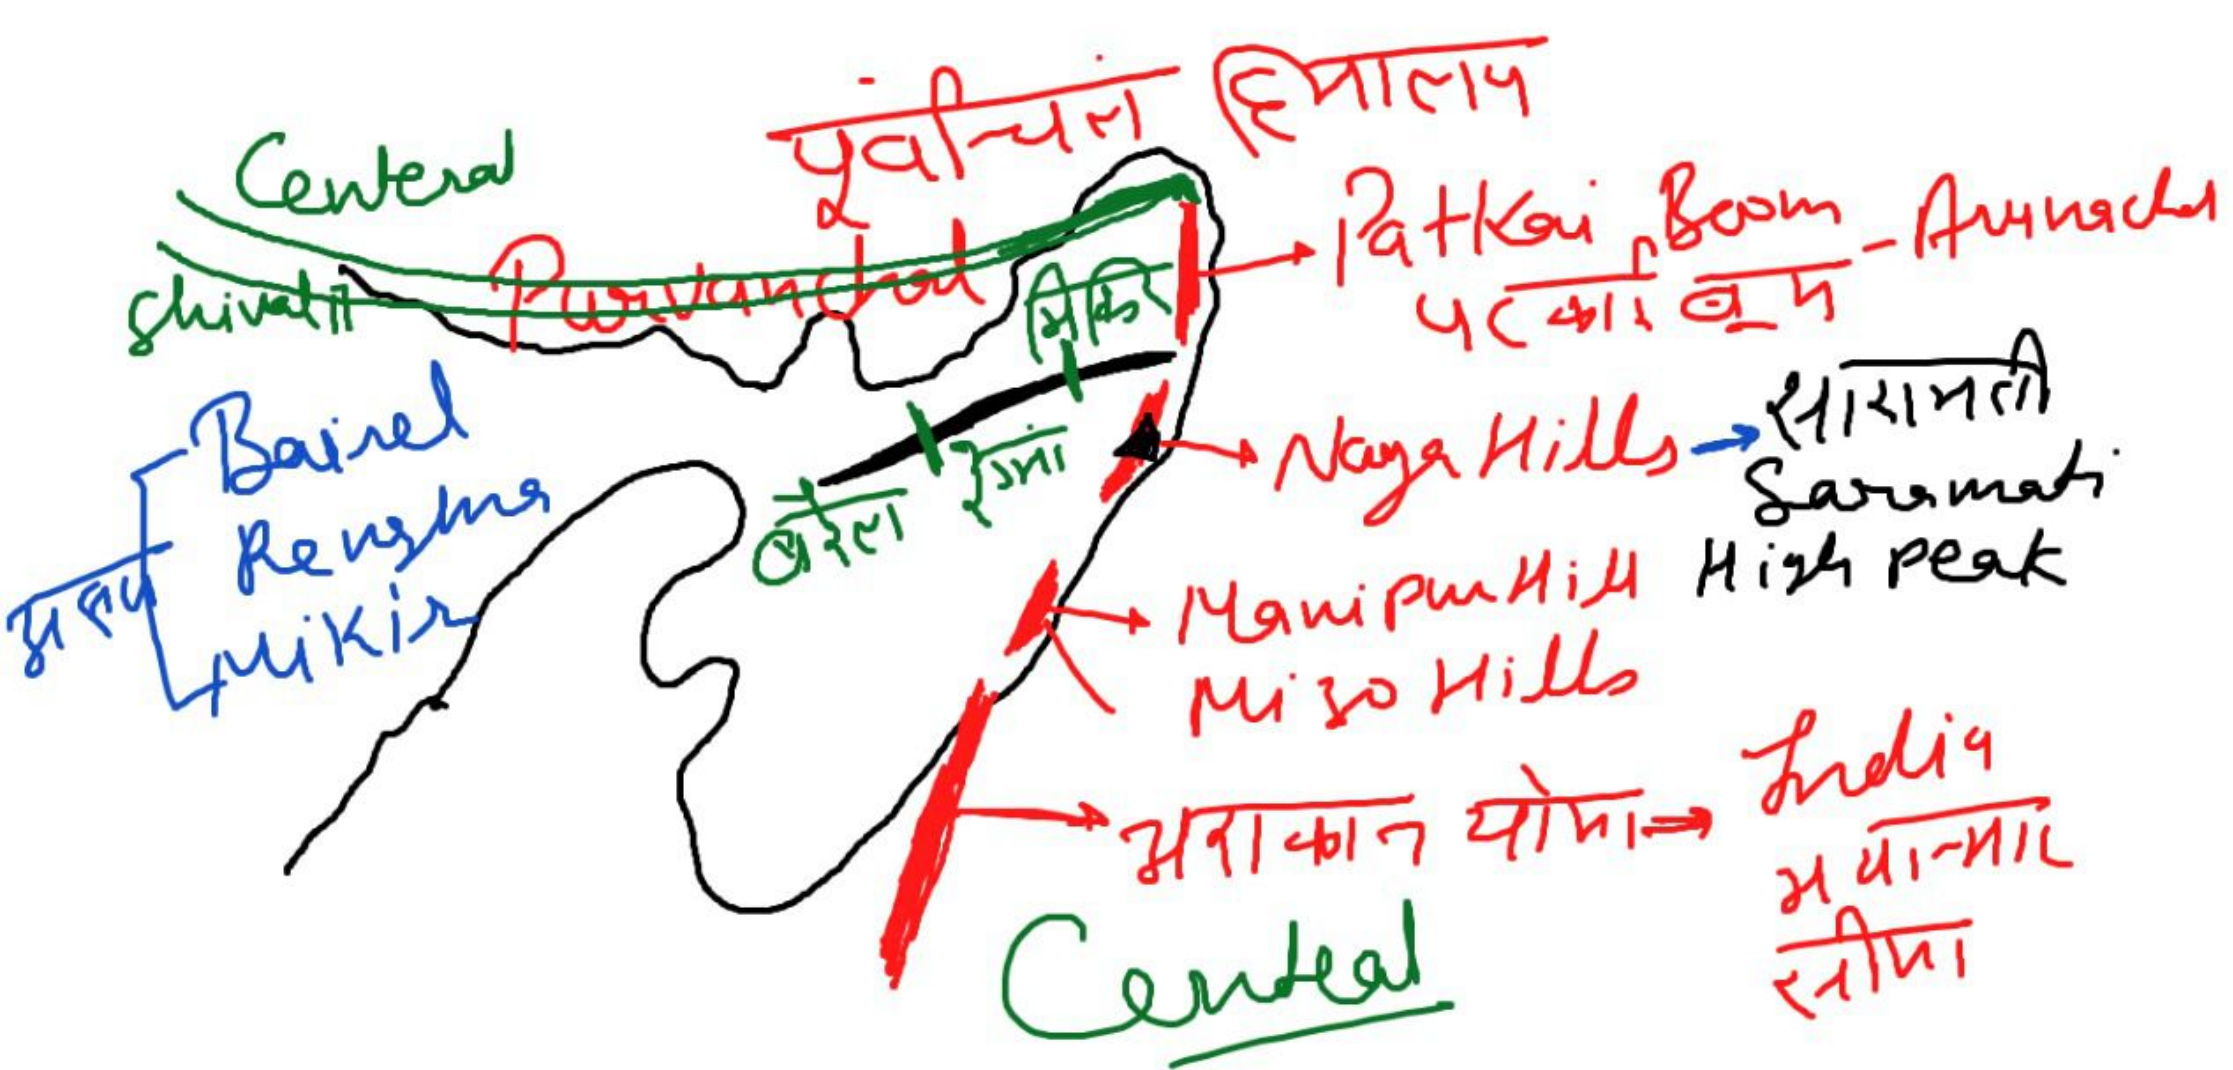 पूर्वांचल हिमालय
Centeral
Purvanchal
Shivalik
Patkai Boom - Arunachal
पटकाई बूम
मिकिर
Bairel
Rengma
Mikir
असम
बरेल
रेंगमा
Naga Hills → सारामती
Saramati
High Peak
Manipur Hill
Mizo Hills
अराकान योमा → India
म्यांमार
सीमा
Central